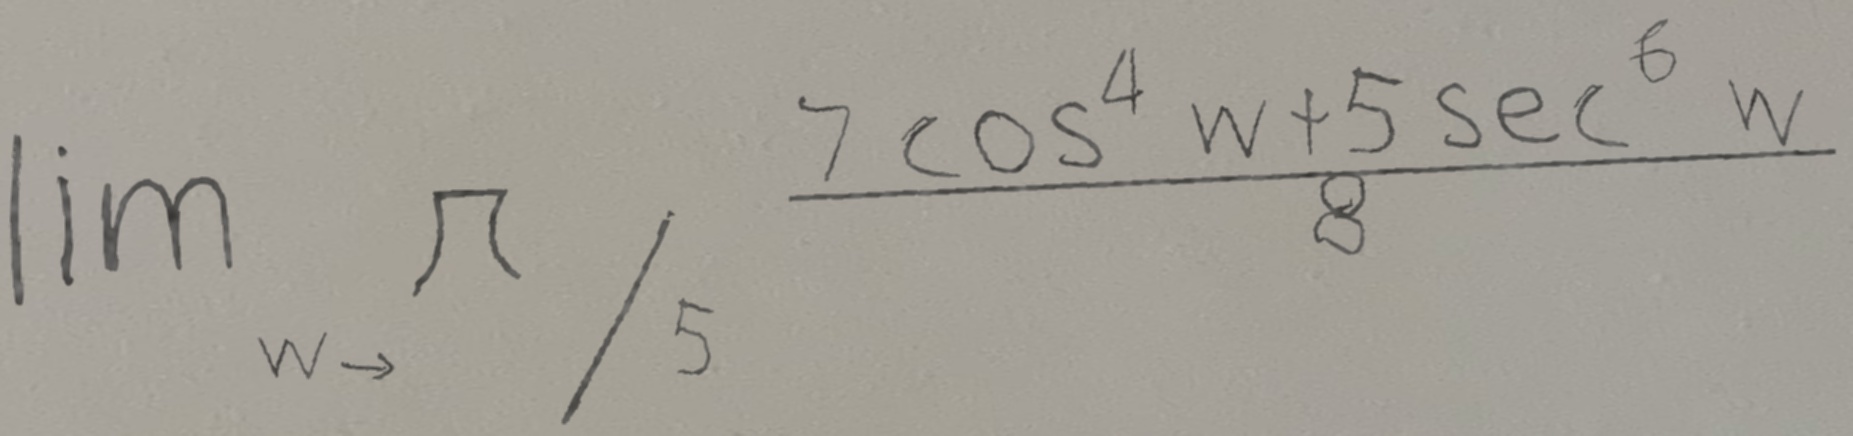 lim w→ π/5 (7 cos^4 w + 5 sec^6 w) / 8